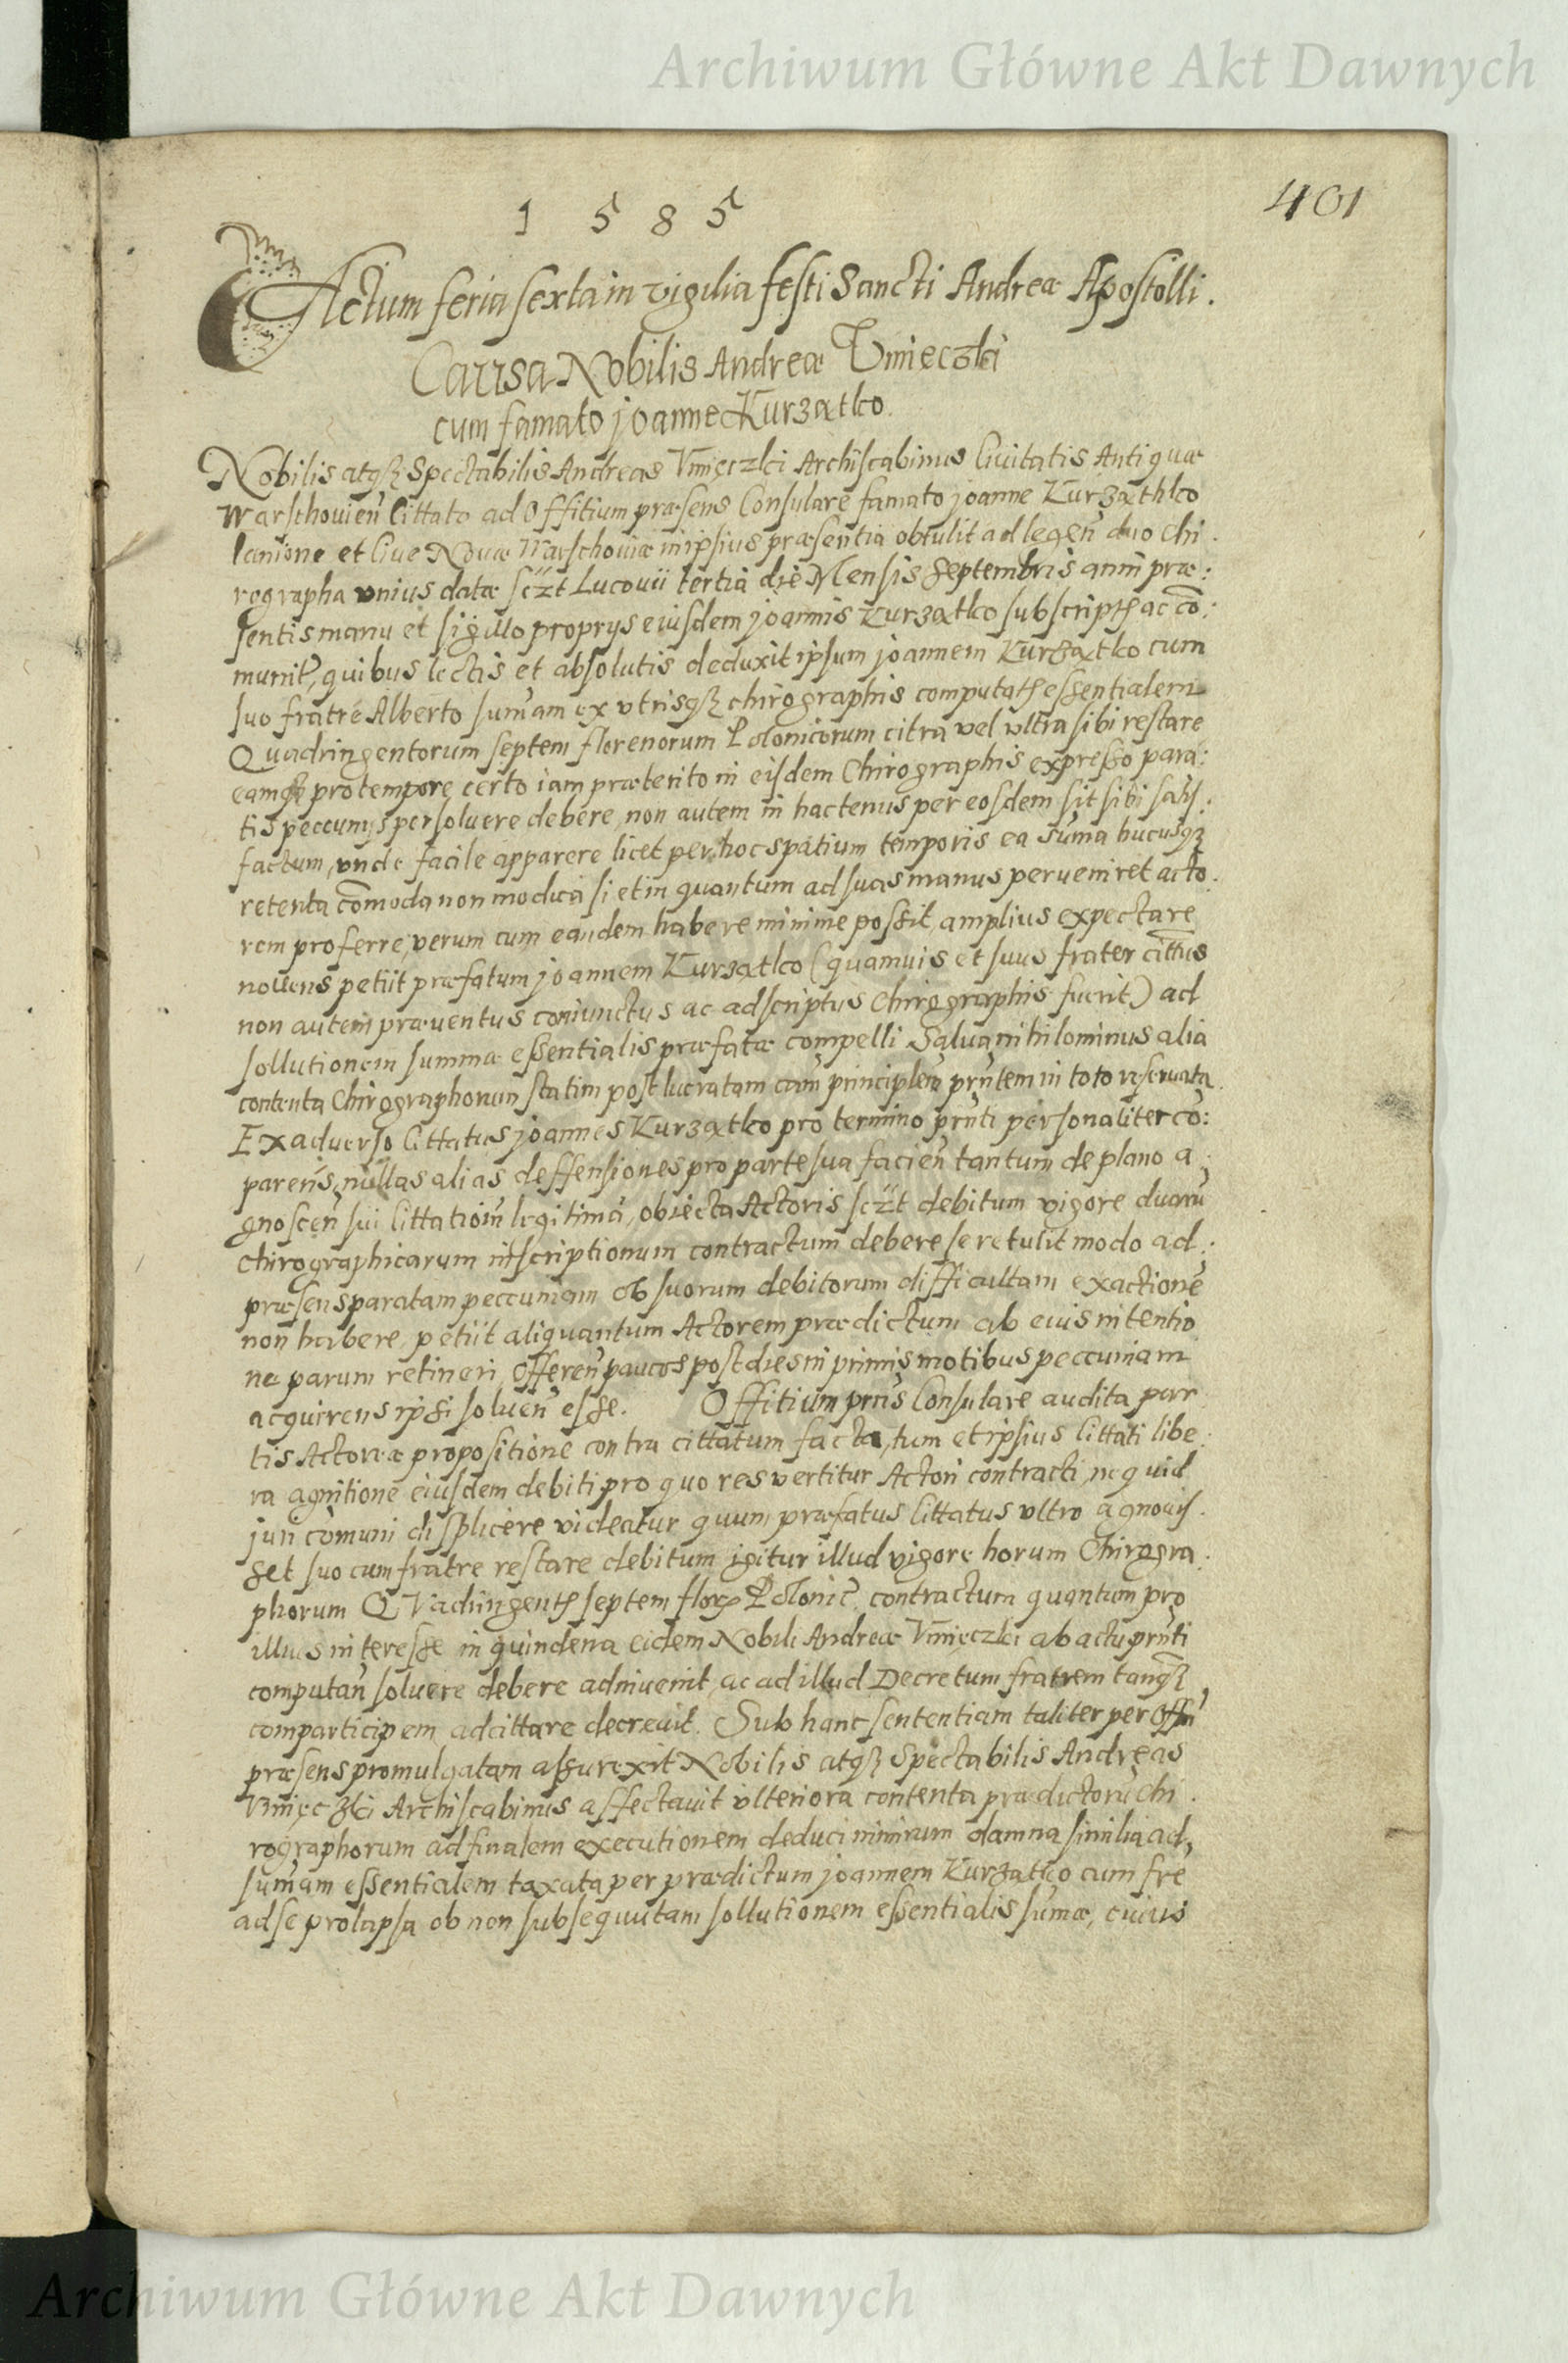 Archiwum Główne Akt Dawnych
401
1 5 8 5
Actum feria sexta in vigilia festi Sancti Andreæ Apostolli.
Causa Nobilis Andreæ Vmięczki
cum famato joanne Kurzątko.
Nobilis atqꝫ Spectabilis Andreas Vmięczki Archiscabinus Ciuitatis Antiquæ
Warschouień Cittato ad Offitium præsens Consulare famato joanne Kurząthko
lanione et Ciue Nouæ Warschouiæ in ipsius præsentia obtulit ad legeń duo Chi.
rographa vnius datæ sczt Lucouii tertia die Mensis Septembris anni præ:
sentis manu et sigillo proprys eiusdem joannis Kurzątko subscript ac co̅:
munit, quibus lectis et absolutis deduxit ipsum joannem Kurzątko cum
suo fratre Alberto sum̃am ex vtrisqꝫ chirographis computat essentialem
Quadringentorum septem florenorum Polonicorum citra vel vltra sibi restare
eamqꝫ pro tempore certo iam præterito in eisdem Chirographis expresso para:
tis peccunijs persoluere debere, non autem in hactenus per eosdem sit sibi satis.
factum, vnde facile apparere licet per hoc spatium temporis ea sum̃a hucusqꝫ
retenta com̅oda non modica si et in quantum ad suas manus perueniret acto.
rem proferre, verum cum eandem habere minime possit, amplius expectare
nolens petiit præfatum joannem Kurzątko (quamuis et suus frater citt̅us
non autem præuentus coniunctus ac adscriptus Chirographis fuerit) ad
sollutionem summæ essentialis præfatæ compelli Salua nihilominus alia
contenta Chirographorum statim post lucratam cam principlem prn̅tem in toto reseruata.
Ex aduerso Cittatus joannes Kurzątko pro termino prn̅ti personaliter co̅:
pareńs, nullas alias deffensiones pro parte sua facień tantum de plano a.
gnosceń sui Cittatioīn legitima, obiecta Actoris sczt debitum vigore duaru̅
Chirographicarum inscriptionum contractum debere se retulit modo ad.
præsens paratam peccuniam ob suorum debitorum difficultam exactione̅
non habere, petiit aliquantum Actorem prædictum ab eius intentio
ne parum retineri, Offereń paucos post dies in primis motibus peccuniam
acquirens ipsi solueń esse. Offitium prn̅s Consulare audita par
tis Actoreæ propositione contra cittatum facta, tum et ipsius Cittati libe.
ra agnitione eiusdem debiti pro quo res vertitur Actori contracti, ne quid
juri com̅uni displicere videatur quum præfatus Cittatus vltro agnouis.
set suo cum fratre restare debitum igitur illud vigore horum Chirogra.
phorum QVadringent septem flor Polonic contractum quantum pro
illius interesse in quindena eidem Nobili Andreæ Vmięczki ab actu prn̅ti
computań soluere debere adinuenit, ac ad illud Decretum fratrem tanqꝫ
comparticipem adcittare decreuit. Sub hanc sententiam taliter per Offn̅
præsens promulgatam assurexit Nobilis atqꝫ Spectabilis Andreas
Vmięczki Archiscabinus affectauit vlteriora contenta prædictoru̅ Chi.
rographorum ad finalem executionem deduci nimirum damna similia ad,
sum̃am essentialem taxata per prædictum joannem Kurzątko cum fr̅e
ad se prolapsa ob non subsequutam sollutionem essentialis sum̃æ, cuius
Archiwum Główne Akt Dawnych